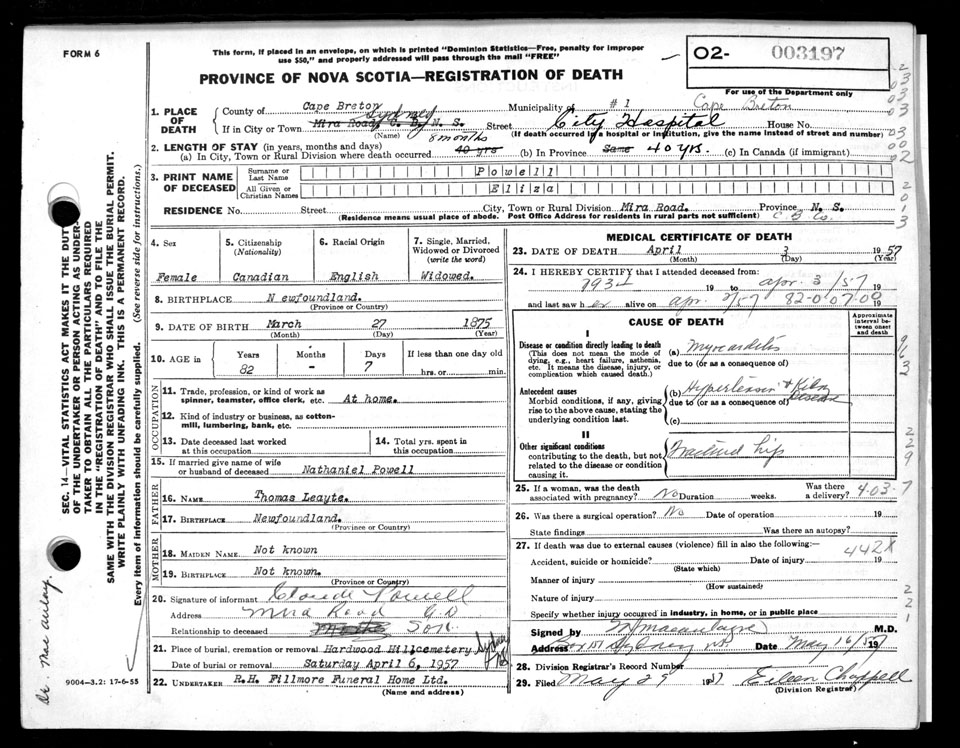 FORM 6
This form, if placed in an envelope, on which is printed "Dominion Statistics—Free, penalty for improper
use $50," and properly addressed will pass through the mail "FREE"
O2- 003197
PROVINCE OF NOVA SCOTIA—REGISTRATION OF DEATH
For use of the Department only
1. PLACE OF DEATH
County of Cape Breton Municipality of # 1 Cape Breton
If in City or Town Mira Road, C. B. N. S. Sydney Street City Hospital House No.
(Name) (If death occurred in a hospital or institution, give the name instead of street and number)
2. LENGTH OF STAY (in years, months and days) 8 months
(a) In City, Town or Rural Division where death occurred 40 yrs (b) In Province Same 40 yrs. (c) In Canada (if immigrant)
3. PRINT NAME OF DECEASED
Surname or Last Name Powell
All Given or Christian Names Eliza
RESIDENCE No. Street City, Town or Rural Division Mira Road. Province N. S.
(Residence means usual place of abode. Post Office Address for residents in rural parts not sufficient) C B Co.
4. Sex Female
5. Citizenship (Nationality) Canadian
6. Racial Origin English
7. Single, Married, Widowed or Divorced (write the word) Widowed.
8. BIRTHPLACE Newfoundland.
(Province or Country)
9. DATE OF BIRTH March 27 1875
(Month) (Day) (Year)
10. AGE in Years Months Days If less than one day old
82 - 7 hrs. or min.
OCCUPATION
11. Trade, profession, or kind of work as
spinner, teamster, office clerk, etc. At home.
12. Kind of industry or business, as cotton-
mill, lumbering, bank, etc.
13. Date deceased last worked
at this occupation
14. Total yrs. spent in
this occupation
15. If married give name of wife
or husband of deceased Nathaniel Powell
FATHER
16. NAME Thomas Leayte.
17. BIRTHPLACE Newfoundland.
(Province or Country)
MOTHER
18. MAIDEN NAME. Not known
19. BIRTHPLACE Not known.
(Province or Country)
20. Signature of informant Claude Powell
Address Mira Road
Relationship to deceased Son.
21. Place of burial, cremation or removal Hardwood Hill cemetery Sydney
Date of burial or removal Saturday April 6, 1957
22. UNDERTAKER R.H. Fillmore Funeral Home Ltd.
(Name and address)
MEDICAL CERTIFICATE OF DEATH
23. DATE OF DEATH April 3 1957
(Month) (Day) (Year)
24. I HEREBY CERTIFY that I attended deceased from:
1934 19 to apr. 3/57 19
and last saw her alive on apr 2/57 82-0-07-00 19
CAUSE OF DEATH
Approximate interval between onset and death
I
Disease or condition directly leading to death
(This does not mean the mode of
dying, e.g., heart failure, asthenia,
etc. It means the disease, injury, or
complication which caused death.)
(a) Myocarditis
due to (or as consequence of)
Antecedent causes
Morbid conditions, if any, giving
rise to the above cause, stating the
underlying condition last.
(b) Hypertension + Kidney Disease
due to (or as a consequence of)
(c)
II
Other significant conditions
contributing to the death, but not
related to the disease or condition
causing it.
Fractured hip
25. If a woman, was the death
associated with pregnancy? No Duration weeks. Was there a delivery? 403-7
26. Was there a surgical operation? No Date of operation 19
State findings Was there an autopsy?
27. If death was due to external causes (violence) fill in also the following:— 442X
Accident, suicide or homicide? Date of injury 19
(State which)
Manner of injury
(How sustained)
Nature of injury
Specify whether injury occurred in industry, in home, or in public place
Signed by M.D.
Address Sydney NS Date May 16/57 19
28. Division Registrar's Record Number
29. Filed May 29 1957 Eileen Chappell
(Division Registrar)
SEC. 14—VITAL STATISTICS ACT MAKES IT THE DUTY
OF THE UNDERTAKER OR PERSON ACTING AS UNDER-
TAKER TO OBTAIN ALL THE PARTICULARS REQUIRED
IN THE "REGISTRATION OF DEATH" AND TO FILE THE
SAME WITH THE DIVISION REGISTRAR WHO SHALL ISSUE THE BURIAL PERMIT.
WRITE PLAINLY WITH UNFADING INK. THIS IS A PERMANENT RECORD.
Every item of information should be carefully supplied. (See reverse side for instructions.)
Dr. Mac aulay.
9004-3.2: 17-6-55